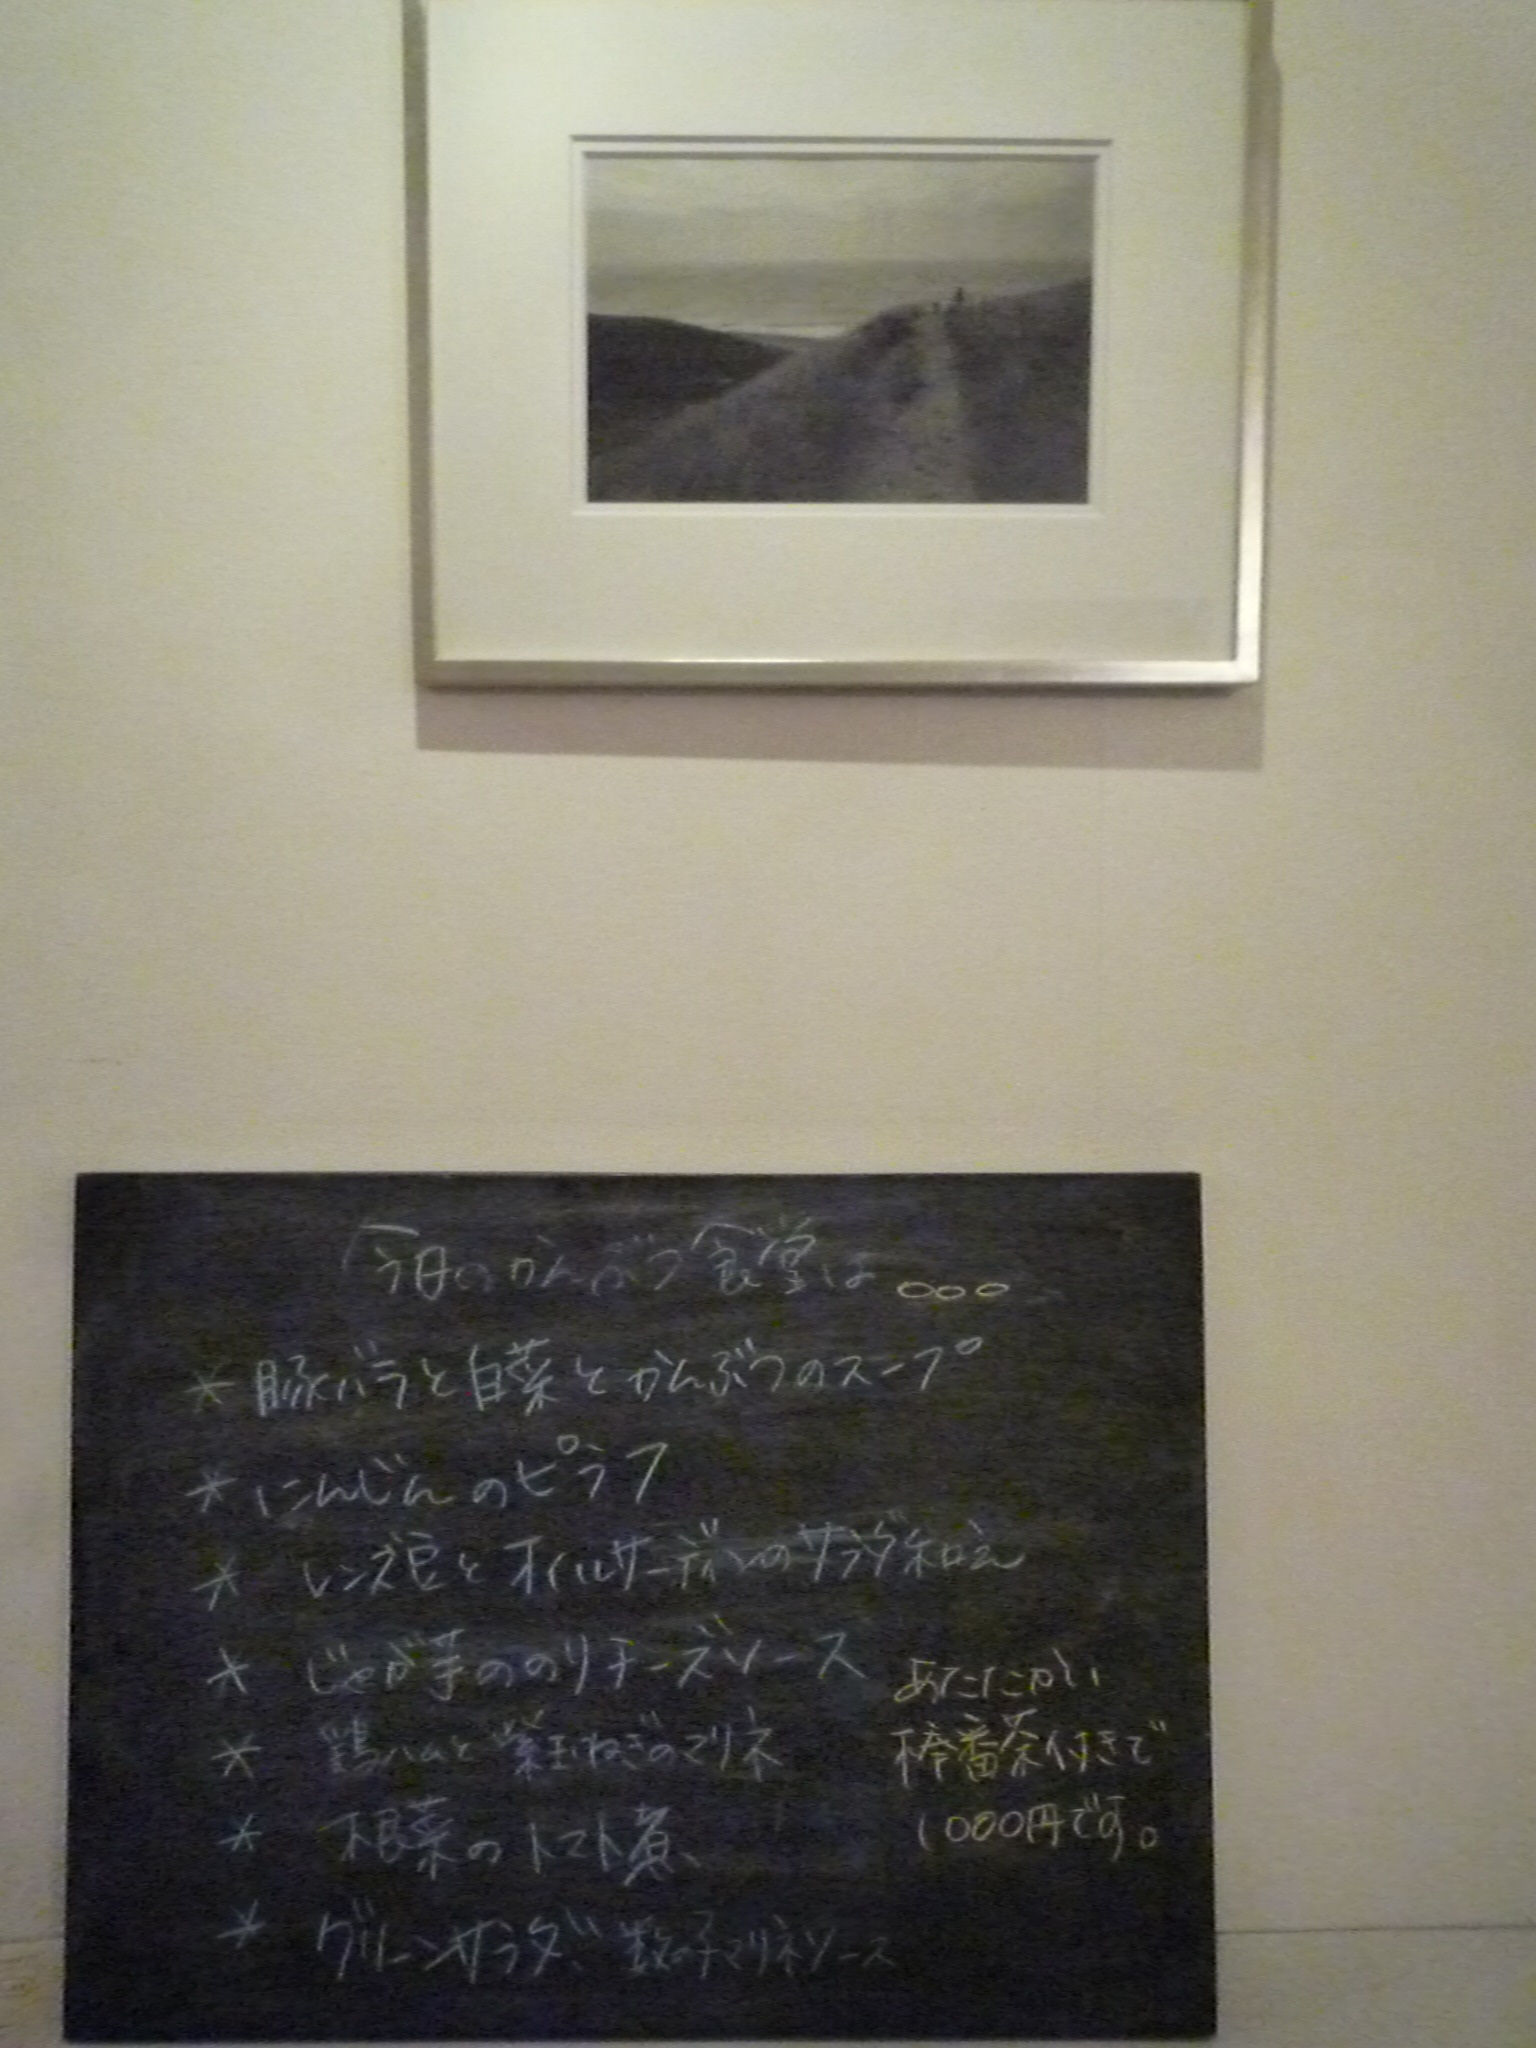 今日のかんぶつ食堂は。。。
*豚バラと白菜とかんぶつのスープ
*にんじんのピラフ
*レンズ豆とオイルサーディンのサラダ和え
*じゃが芋ののりチーズソース
*鶏ハムと紫玉ねぎのマリネ
*根菜のトマト煮
*グリーンサラダ、数の子マリネソース
あたたかい
棒番茶付きで
1000円です。